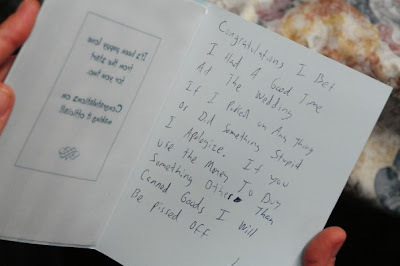 It's been puppy love
from the start
for you two.
Congratulations on
making it official!
Congratulations I Bet
I Had A Good Time
At The Wedding
If I Puked on Any Thing
or Did Something Stupid
I Apologize. If you
use the Money To Buy
Something Other Than
Canned Goods I Will
Be pissed off